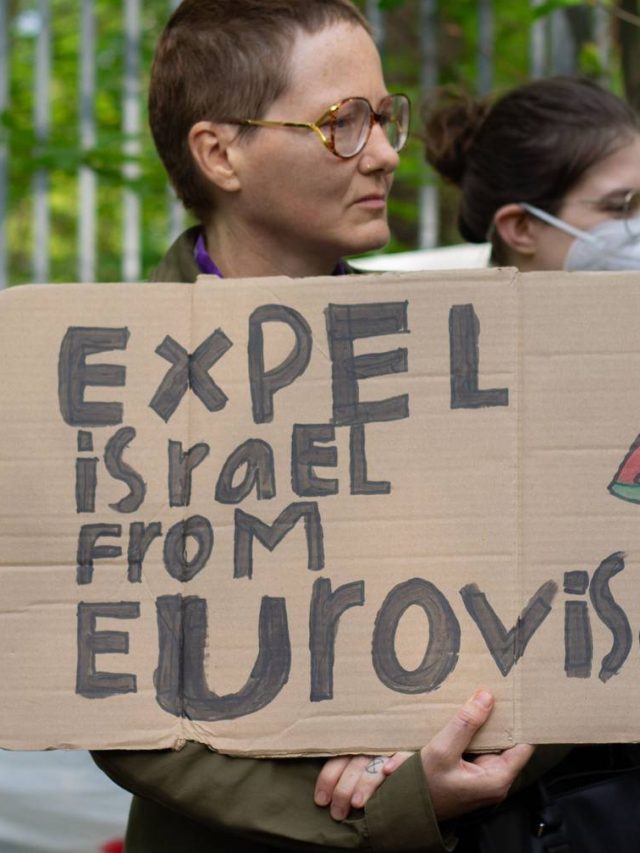 EXPEL
israEL
From
Eurovis